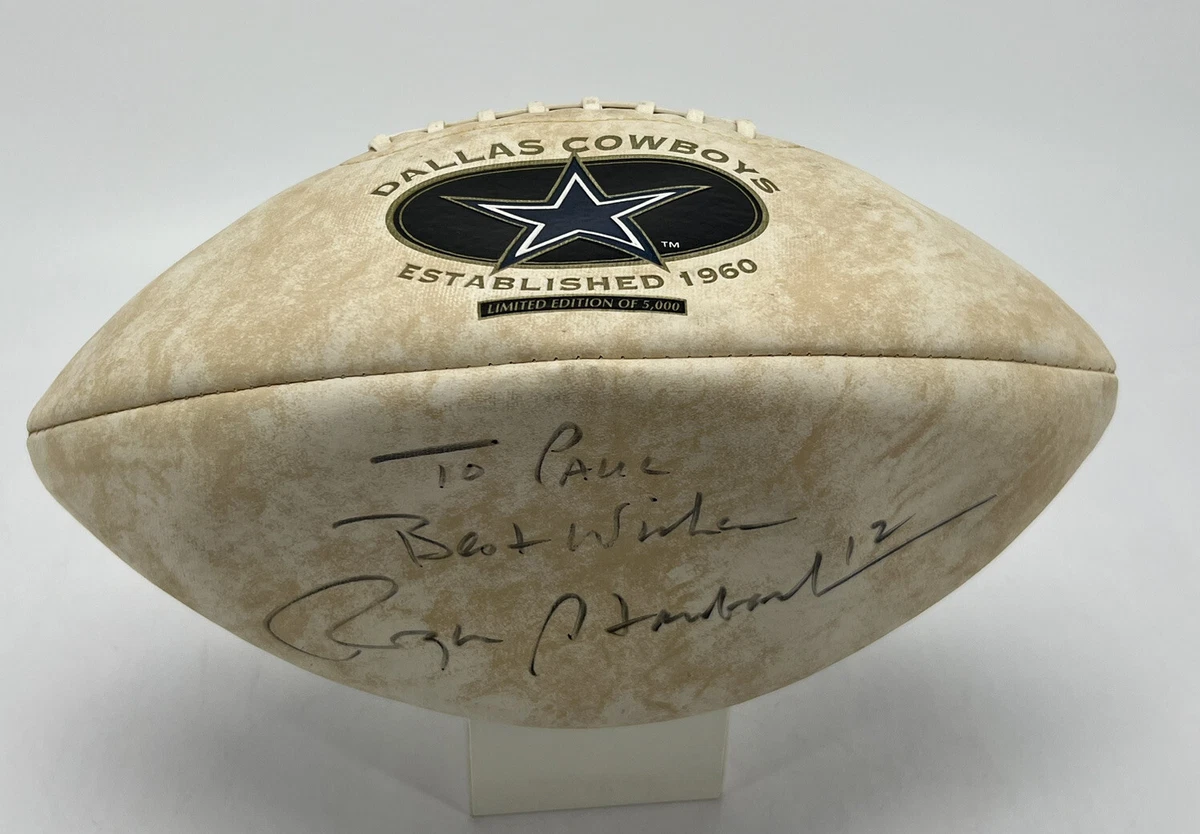 DALLAS COWBOYS
TM
ESTABLISHED 1960
LIMITED EDITION OF 5,000
To Paul
Best Wishes
Roger Staubach 12